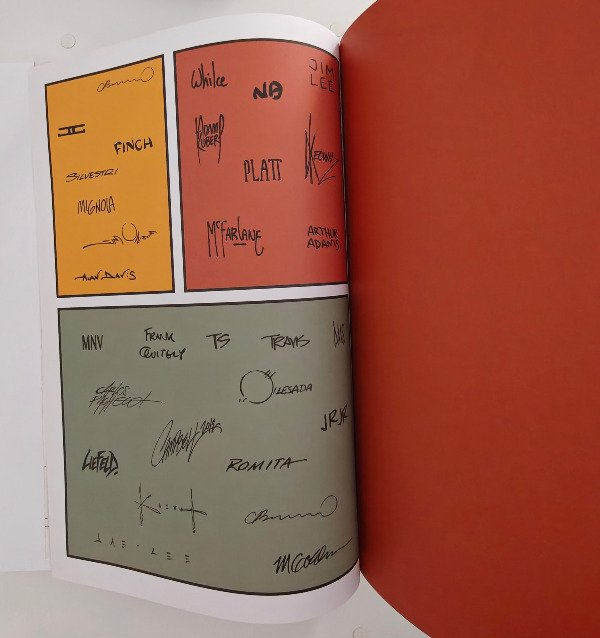 FINCH
SILVESTRI
MIGNOLA
ALAN DAVIS
Whilce
JIM
LEE
ADAM
KUBERT
PLATT
KEOWN
McFARLANE
ARTHUR
ADAMS
MNV
FRANK
QUITELY
TS
TRAVIS
CARLOS
PACHECO
QUESADA
JRJR
LIEFELD.
CAMPBELL
ROMITA
JAE·LEE